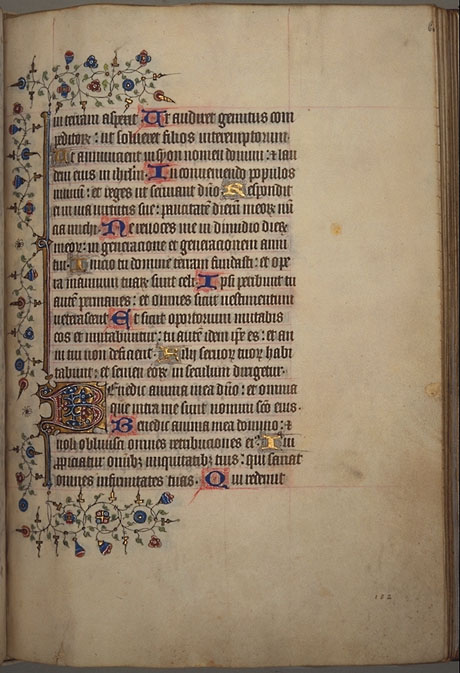 in terram aspexit Ut audiret gemitus com
peditorum: ut solveret filios interemptorum.
Ut annuncient in syon nomen domini: et lau
dem eius in ihrlm. In conveniendo populos
in unum: et reges ut serviant dno. Respondit
ei in via virtutis sue: paucitatem dierum meorum nun
cia michi. Ne revoces me in dimidio dierum
meorum: in generacione et generacionem anni
tui. Inicio tu domine terram fundasti: et ope
ra manuum tuarum sunt celi. Ipsi peribunt tu
autem permanes: et omnes sicut vestimentum
veterascent. Et sicut oportorium mutabis
eos et mutabuntur: tu autem idem ipse es: et an
ni tui non deficient. Filii servorum tuorum habi
tabunt: et semen eorum in seculum dirigetur.
Benedic anima mea dno: et omnia
que intra me sunt nomini sco eius.
Benedic anima mea domino: et
noli oblivisci omnes retribuciones eius. Qui
propiciatur omnibus iniquitatibus tuis: qui sanat
omnes infirmitates tuas. Qui redemit
182